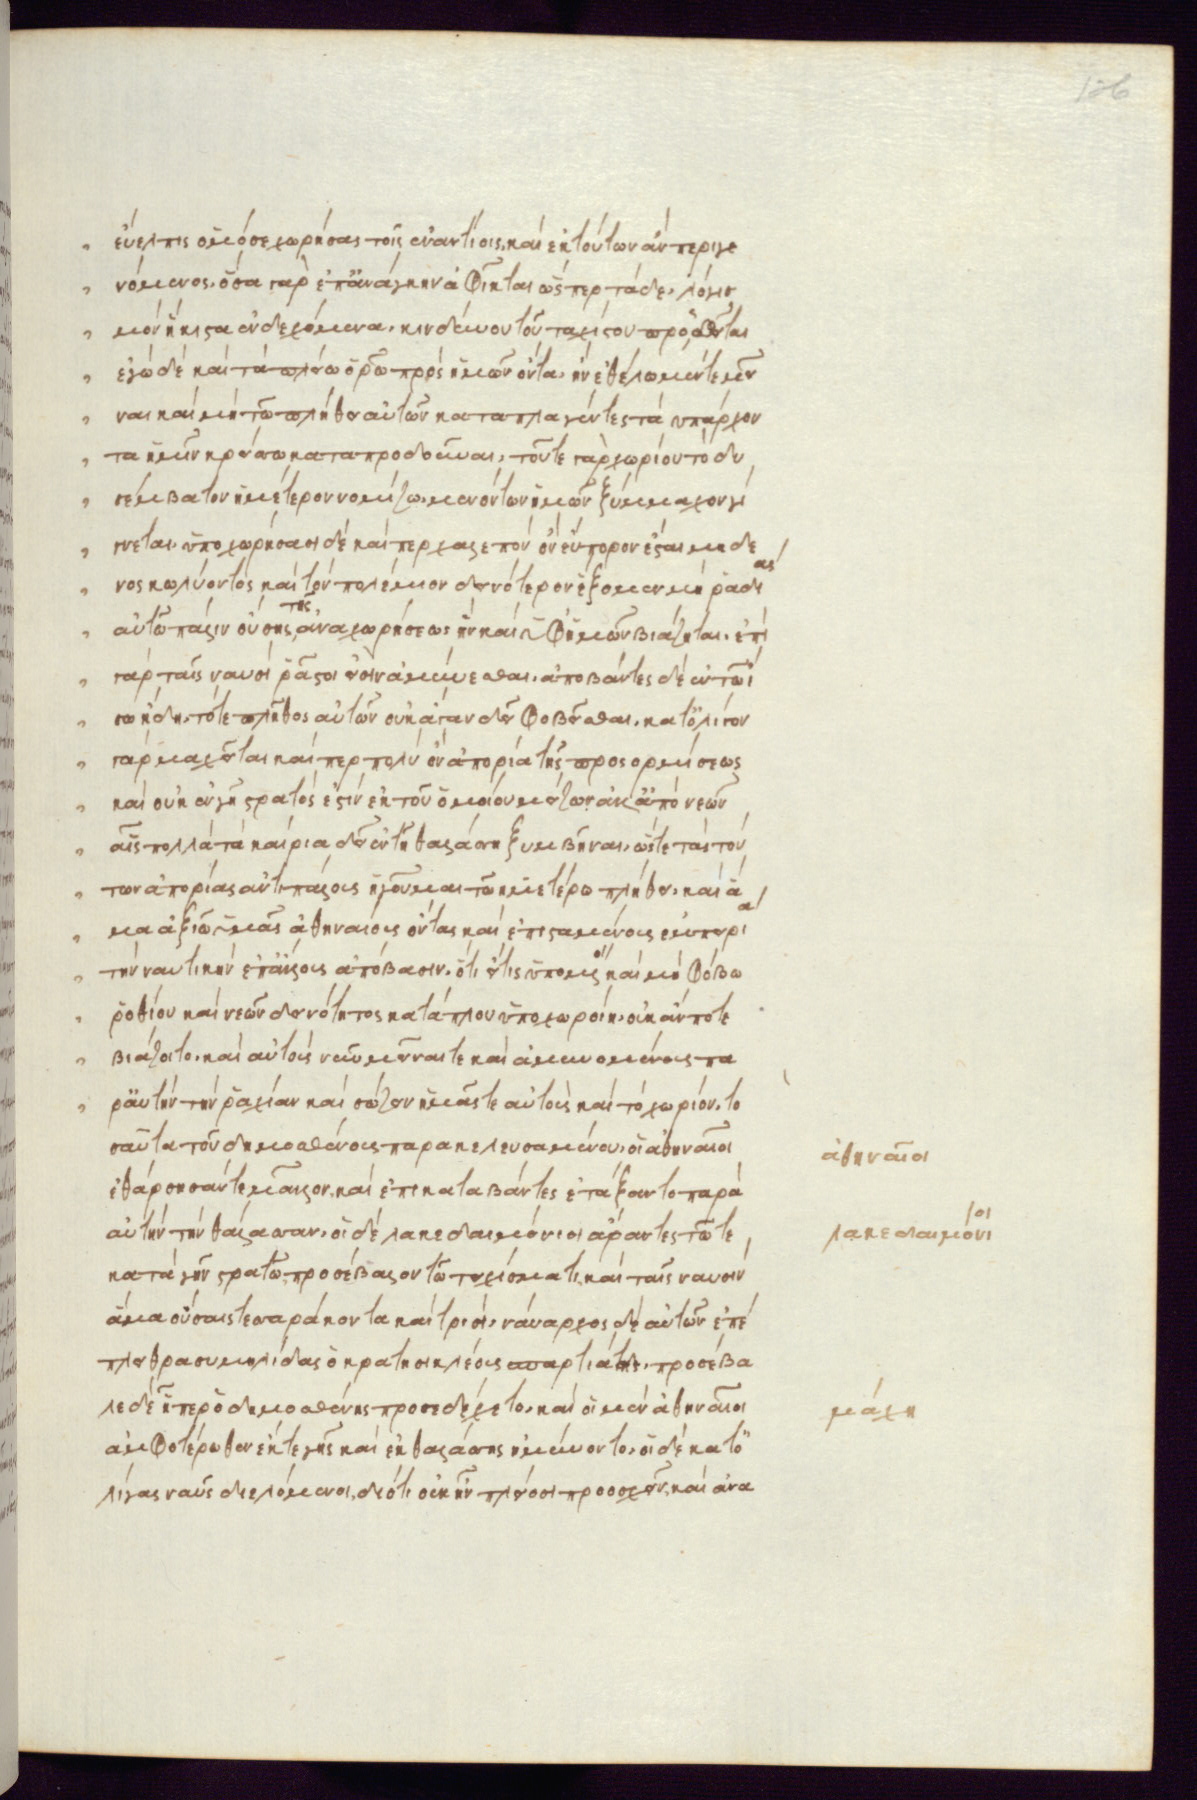 εὔελπις ὁμόσε χωρήσας τοῖς ἐναντίοις, καὶ ἐκ τούτων ἂν περιγε
νόμενος. ὅσα γὰρ ἐπ' ἀνάγκην ἀφῖκται ὥσπερ τάδε, λογισ
μὸν ἥκιστα ἐνδεχόμενα. κινδύνου τοῦ ταχίστου προσδεῖται
ἐγὼ δὲ καὶ τὰ πλείω ὁρῶ πρὸς ἡμῶν ὄντα, ἢν ἐθέλωμέν τε μεῖ
ναι καὶ μὴ τῶ πλήθει αὐτῶν καταπλαγέντες τὰ ὑπάρχον
τα ἡμῖν κρείσσω καταπροδοῦναι. τοῦ τε γὰρ χωρίου τὸ δυ
σέμβατον ἡμέτερον νομίζω. μενόντων ἡμῶν ξύμμαχον γί
γνεται. ὑποχωρήσασι δὲ καίπερ χαλεπὸν ὂν εὔπορον ἔσται μηδε
νὸς κωλύοντος καὶ τὸν πολέμιον δεινότερον ἕξομεν μὴ ῥαδίας
αὐτῶ πάλιν οὔσης τῆς ἀναχωρήσεως ἢν καὶ ὑφ' ἡμῶν βιάζηται. ἐπὶ
γὰρ ταῖς ναυσὶ ῥᾶστοι εἰσὶν ἀμύνεσθαι. ἀποβάντες δὲ ἐν τῶ ἴ
σω ἤδη. τό τε πλῆθος αὐτῶν οὐκ ἄγαν δεῖ φοβεῖσθαι. κατ' ὀλίγον
γὰρ μαχεῖται καίπερ πολὺ ὂν ἀπορία τῆς προσορμίσεως
καὶ οὐκ ἐν γῆ στρατός ἐστιν ἐκ τοῦ ὁμοίου μείζων ἀλλ' ἀπὸ νεῶν
αἷς πολλὰ τὰ καίρια δεῖ ἐν τῆ θαλάσση ξυμβῆναι. ὥστε τὰς τού
των ἀπορίας ἀντιπάλους ἡγοῦμαι τῶ ἡμετέρω πλήθει. καὶ ἅ
μα ἀξιῶ ὑμᾶς ἀθηναίους ὄντας καὶ ἐπισταμένους ἐμπειρία
τὴν ναυτικὴν ἐπ' ἄλλους ἀπόβασιν. ὅτι εἴ τις ὑπομένοι καὶ μὴ φόβω
ῥοθίου καὶ νεῶν δεινότητος κατάπλου ὑποχωροίη. οὐκ ἄν ποτε
βιάζοιτο. καὶ αὐτοὺς νῦν μεῖναί τε καὶ ἀμυνομένους πα
ρ' αὐτὴν τὴν ῥαχίαν καὶ σώζειν ἡμᾶς τε αὐτοὺς καὶ τὸ χωρίον. το
σαῦτα τοῦ δημοσθένους παρακελευσαμένου. οἱ ἀθηναῖοι
ἐθάρσησάν τε μᾶλλον. καὶ ἐπικαταβάντες ἐτάξαντο παρὰ
αὐτὴν τὴν θάλασσαν. οἱ δὲ λακεδαιμόνιοι ἄραντες τῶ τε
κατὰ γῆν στρατῶ προσέβαλλον τῶ τειχίσματι, καὶ ταῖς ναυσὶν
ἅμα οὔσαις τεσσαράκοντα καὶ τρισί. ναύαρχος δὲ αὐτῶν ἐπέ
πλει θρασυμηλίδας ὁ κρατησικλέους σπαρτιάτης. προσέβα
λε δὲ ᾗπερ ὁ δημοσθένης προσεδέχετο. καὶ οἱ μὲν ἀθηναῖοι
ἀμφοτέρωθεν ἔκ τε γῆς καὶ ἐκ θαλάσσης ἠμύνοντο. οἱ δὲ κατ' ὀ
λίγας ναῦς διελόμενοι, διότι οὐκ ἦν πλείοσι προσσχεῖν, καὶ ἀνα
ἀθηναῖοι
λακεδαιμόνιοι
μάχη